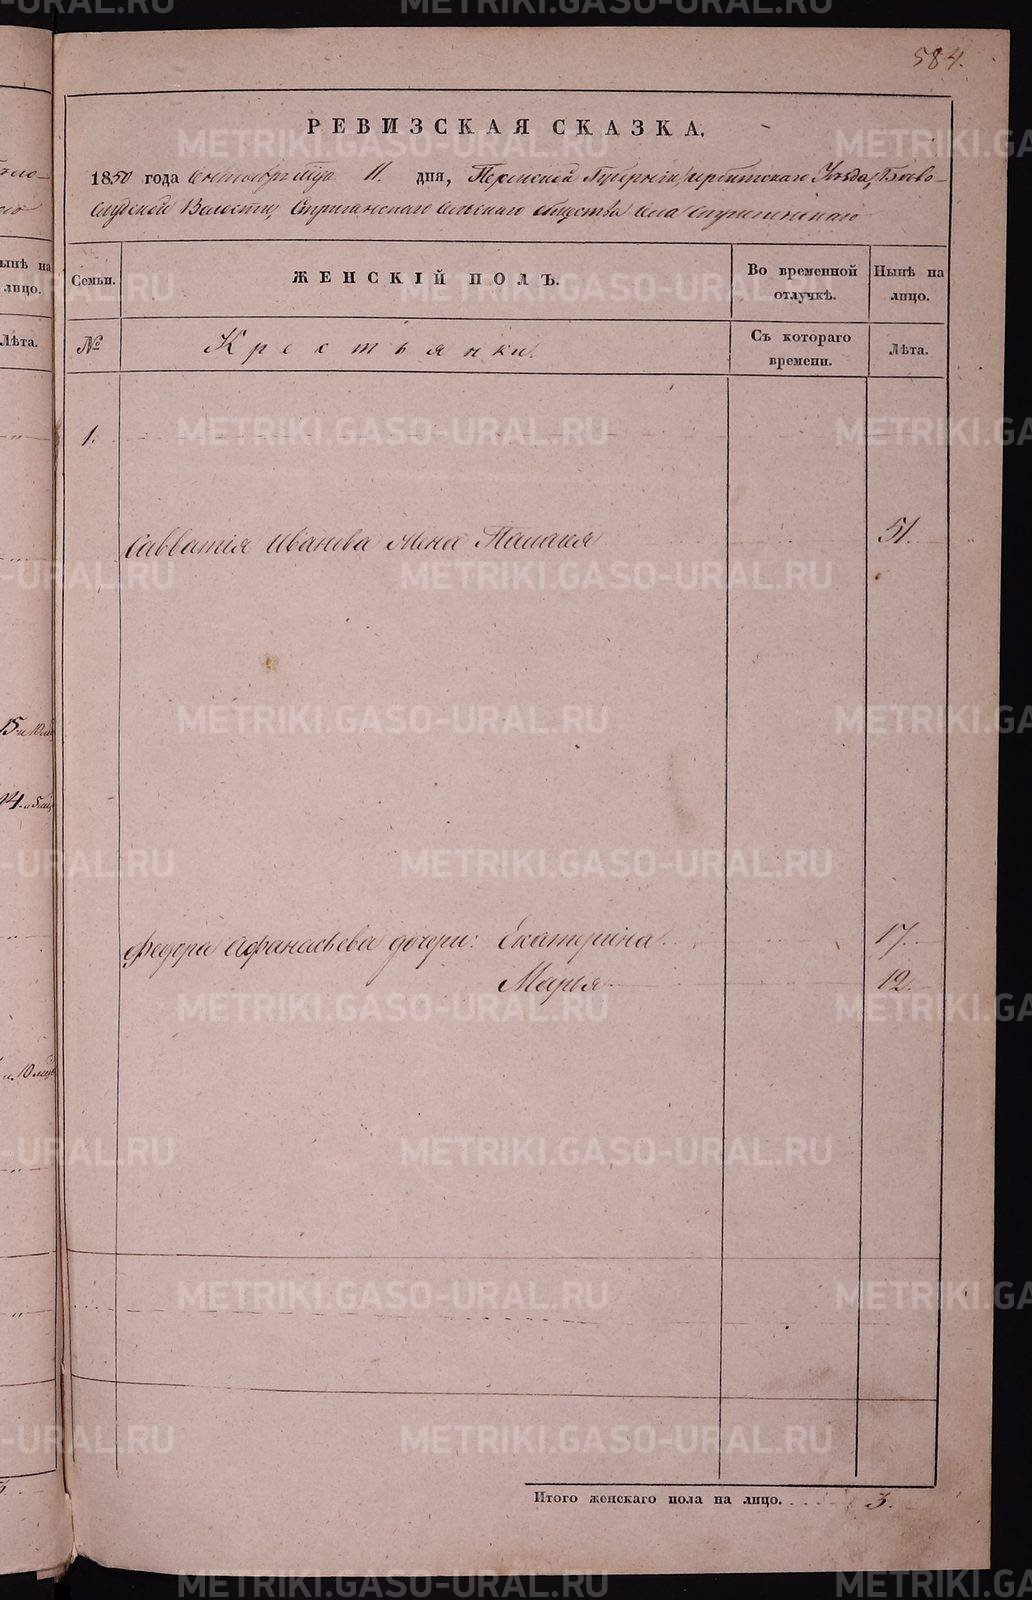 584.
РЕВИЗСКАЯ СКАЗКА.
1850 года Октября мца 11. дня, Пермской Губернiи Ирбитскаго Уѣзда, Бѣло-
слудской Волости, Стриганскаго сельскаго общества села Стриганскаго
Семьи. ЖЕНСКIЙ ПОЛЪ. Во временной отлучкѣ. Нынѣ на лицо.
№ Крестьянки. Съ котораго времени. Лѣта.
1.
Савватiя Иванова жена Палагея 51.
Федора Афанасьева дочери: Екатерина 17.
Марья 12.
Итого женскаго пола на лицо. 3.
ынѣ на
лицо.
Лѣта.
METRIKI.GASO-URAL.RU